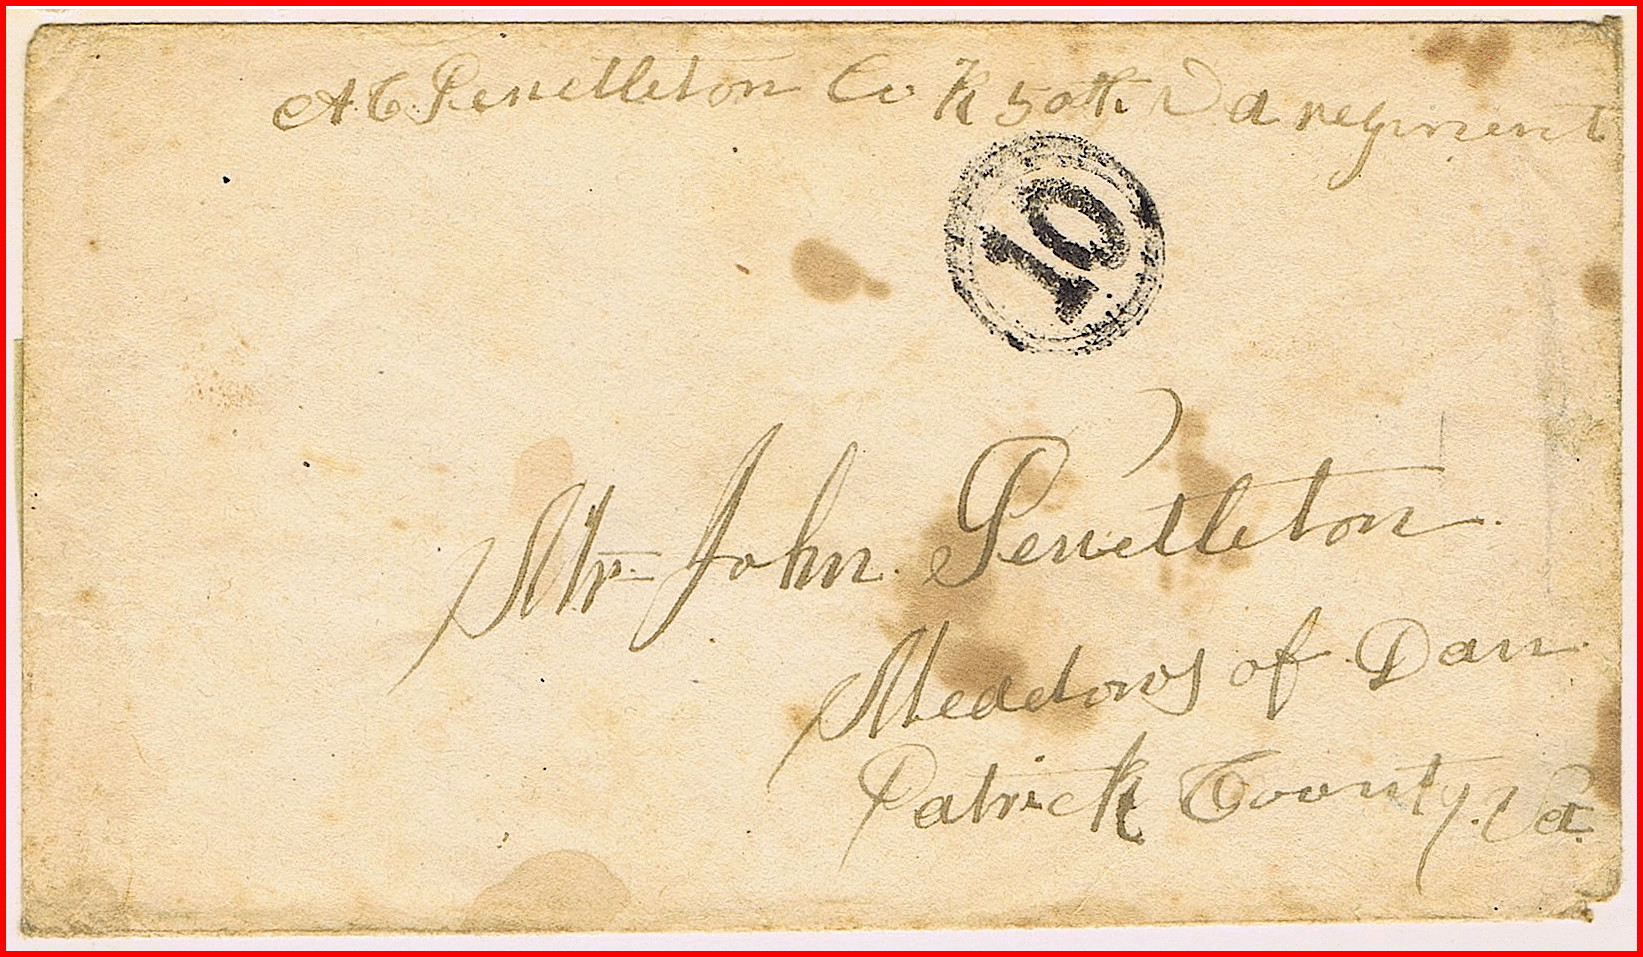 A C Pendleton Co K 50th Va regiment
10
Mr John Pendleton
Meadows of Dan
Patrick County. Va